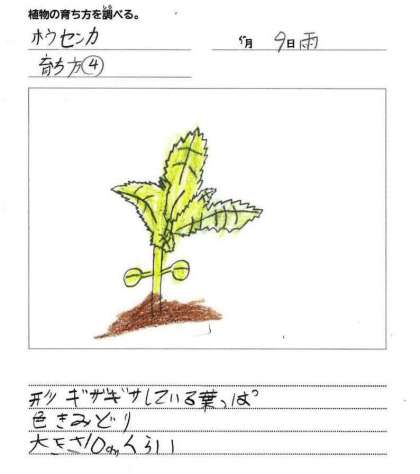 植物の育ち方を調べる。
ホウセンカ
5月 9日雨
育ち方④
形 ギザギザしている葉っぱ
色きみどり
大きさ10cmくらい